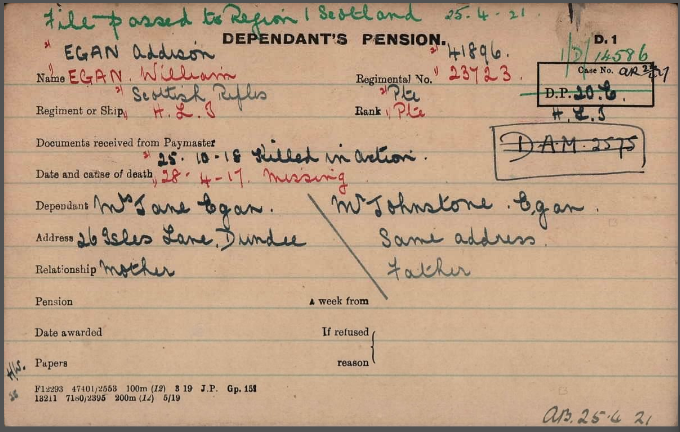 File passed to Region 1 Scotland 25.4.21
DEPENDANT'S PENSION.
D.1
1/D/14586
2) EGAN Addison 2) 41896.
Name 1) EGAN. William Regimental No. 1) 23723.
Case No.
2) Scottish Rifles 2) Pte
D.P. 20.C.
Regiment or Ship 1) H.L.I Rank 1) Pte
H.L.I
Documents received from Paymaster
D.A.M. 2575
2) 25.10.18 Killed in action.
Date and cause of death 1) 28-4-17. Missing
Dependant Mrs Jane Egan. Mr Johnstone Egan.
Address 26 Isles Lane, Dundee Same address.
Relationship Mother Father
Pension A week from
Date awarded If refused
Papers reason
F12293 47401/2553 100m (12) 3 19 J.P. Gp. 151
13211 7180/2395 200m (12) 5/19
AB. 25.4 21